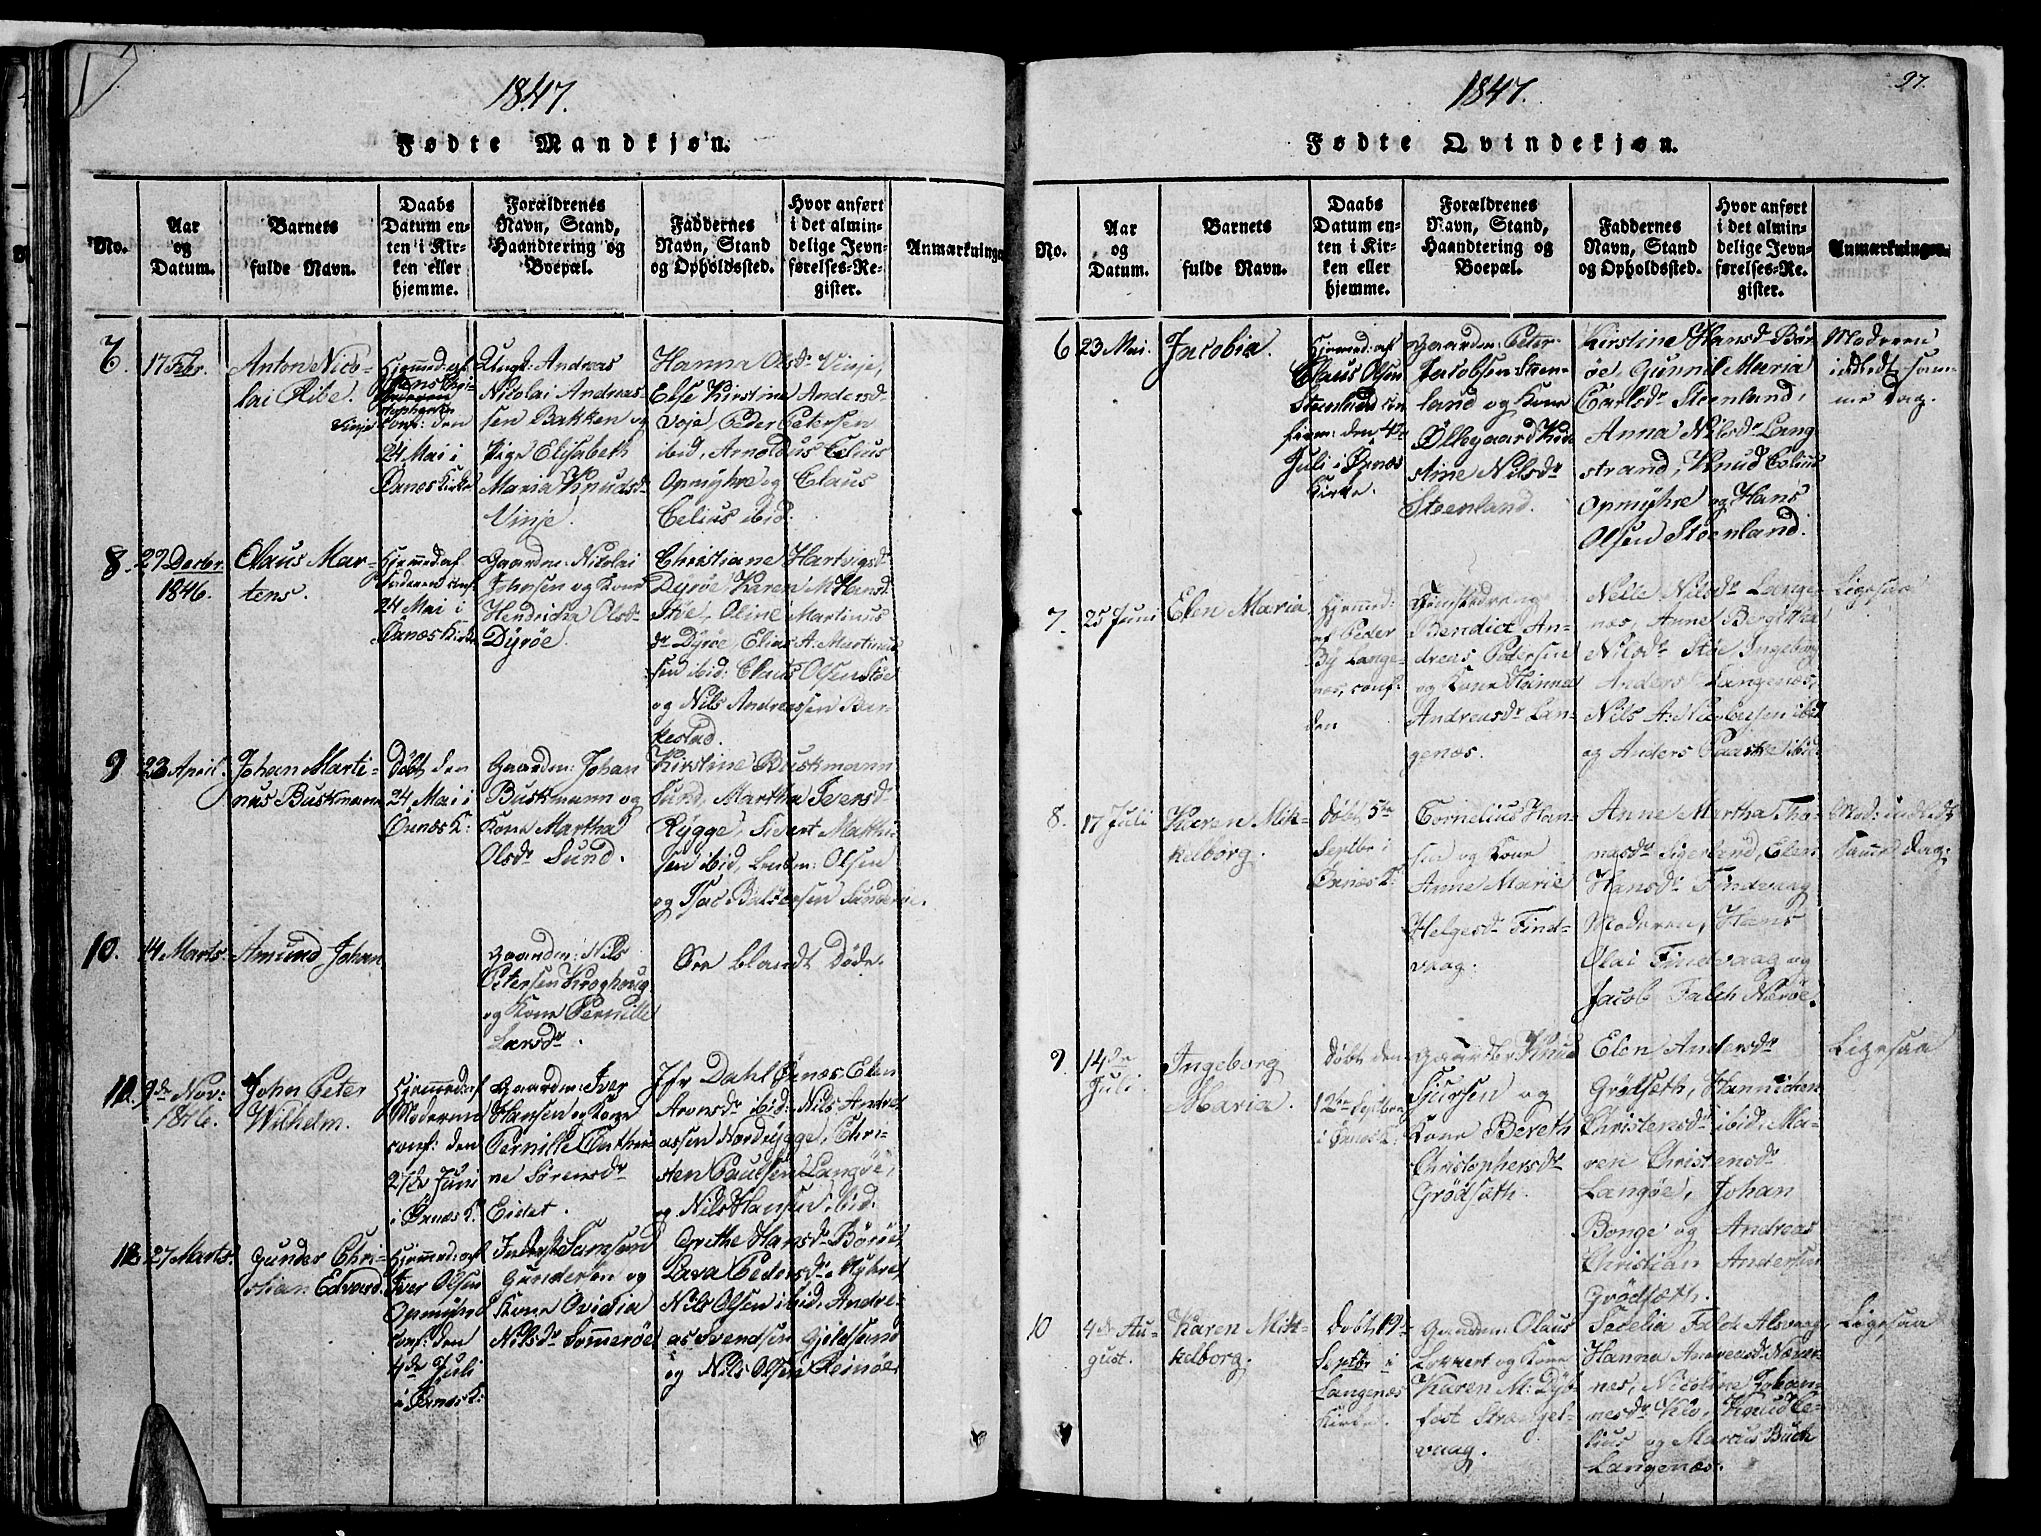 1847.
Fødte Mandkjøn.
No.
Aar
og
Datum.
Barnets
fulde Navn.
Daabs
Datum en-
ten i Kir-
ken eller
hjemme.
Forældrenes
Navn, Stand,
Haandtering og
Boepæl.
Faddernes
Navn, Stand
og Opholdssted.
Hvor anført
i det almin-
delige Jevn-
førelses-Re-
gister.
Anmarkninger
7. 17 Febr.
Anton Nico-
lai Ribe.
Hjemmed: af
Vinje
conf: den
24 Mai i
Øxnes Kirke
Ungk: Andreas
Nikolai Andreas-
sen Bakken og
Pige Elisabeth
Maria Knudsdr
Vinje.
Hanna Olsdr Vinje,
Else Kirstine Andersd
Voje, Peder Petersen
ibid, Arnoldus Celius
Opmyhre og Claus
Celius ibid.
8. 27 Decbr
1846.
Olaus Mar-
tens.
Hjemmed: af
Faderen conf.
24 Mai i
Øxnes Kirke
Gaardm: Nikolai
Johnsen og Kone
Hendricka Olsdr
Dyrøe.
Christiane Hartvigsdr
Dyrøe, Karen M. Hansd
Støe, Oline Martinus
dr Dyrøe, Elias A. Martinus
sen ibid: Claus Olsen Støe
og Nils Andreassen Bar-
kestad.
9 23 April.
Johan Marti-
nus Buskmann
Døbt den
24 Mai i
Øxnes K:
Gaardm: Johan
Buskmann og
Kone Martha
Olsdr Sund.
Kirstine Buskmann
Sund, Martha Iversd
Rygge, Sivert Mathi-
sen ibid, Olsen
og Isac Baltsersen
10. 14 Marts.
Amund Johan
Gaardm: Nils
Petersen
og Kone Pernille
Larsdr.
See blandt Døde.
11. 9de Nov:
1846.
John Peter
Wilhelm.
Hjemmed: af
Moderen
conf: den
27de Juni
i Øxnes K.
Gaardm: Iver
Hansen og Kone
Pernille Cathri-
ne Sørensdr
Eidet.
Jfr Dahl Øxnes, Elen
Aronsdr ibid: Nils Andre
assen Nordrygge, Chri-
sten Paulsen Langøe,
og Nils Hansen ibid.
12 27 Marts.
Gunder Chri-
stian Edvard.
Hjemmed: af
Iver Olsen
Opmyhre
conf: den
4de Juli
i Øxnes K:
Inderst Samsund
Gundersen og
Kone Ovidia
Nilsdr Sommerøe
Grethe Hansdr Børøe
Lava Pedersdr Myhre,
Nils Olsen ibid, Andre-
as Svendsen Gjeldsund
og Nils Olsen Reinøe.
1847.
27.
Fødte Qvindekjøn.
No.
Aar
og
Datum.
Barnets
fulde Navn.
Daabs
Datum en-
ten i Kir-
ken eller
hjemme.
Forældrenes
Navn, Stand,
Haandtering og
Boepæl.
Faddernes
Navn, Stand
og Opholdssted.
Hvor anført
i det almin-
delige Jevn-
førelses-Re-
gister.
Anmarkninger.
6 23 Mai.
Jacobia.
Hjemmed: af
Claus Olsen
Steenland con-
firm: den 4de
Juli i Øxnes
Kirke.
Gaardm: Peter
Jacobsen Steen-
land og Kone
Øllegaard Kir-
stine Nilsdr
Steenland.
Kirstine Hansd Bør
øe Gunnil Maria
Carlsdr Steenland,
Anna Nilsdr Lang-
strand, Knud Celius
Opmyhre og Hans
Olsen Steenland.
Moderen
indledt sam-
me Dag.
7. 25 Juni
Elen Maria
Hjemmed:
af Peder
By Lange-
nes, conf.
den
Benedict An-
dreas Petersen
og Kone Hanna
Andreasdr Lan-
genæs.
Nelle Nilsdr Lange-
nes, Anne
Nilsdr Støe, Ingeborg
Anders Langenæs,
Nils A. ibid
og Anders ibid
Ligesaa
8. 17 Juli
Karen Mik-
kelborg.
Døbt 5te
Septbr i
Øxnes K.
Cornelius Han-
sen og Kone
Anne Marie
Helgesdr Find-
vaag.
Anne Martha Tho-
masdr Elen
Hansdr Findvaag
Moderen, Hans
Olai Findvaag og
Jacob Falch Nærøe.
Mod: indledt
Samme Dag.
9. 14de
Juli
Ingeborg
Maria.
Døbt den
12te Septbr
i Øxnes K:
Gaardbr Knud
Sjursen og
Kone Bereth
Christophersdr
Grødsæth.
Elen Andersdr
Grødseth,
Christensdr ibid, Ma-
ren Christensdr
Langøe, Johan
Bonge og Andreas
Christian Andersen
Grødsæth.
Ligesaa
10 4de Au-
gust.
Karen Mik-
kelborg.
Døbt 19de
Septbr i
Langenæs
Kirke.
Gaardm: Olaus
Lockert og Kone
Karen M: Dyb-
fest Strengel-
vaag.
Falch Alsvaag,
Hanna Andreasdr
nes, Nicoline Johan-
nesdr Klo, Knud Ce-
lius og Marcus Buch
Langenæs.
Ligesaa